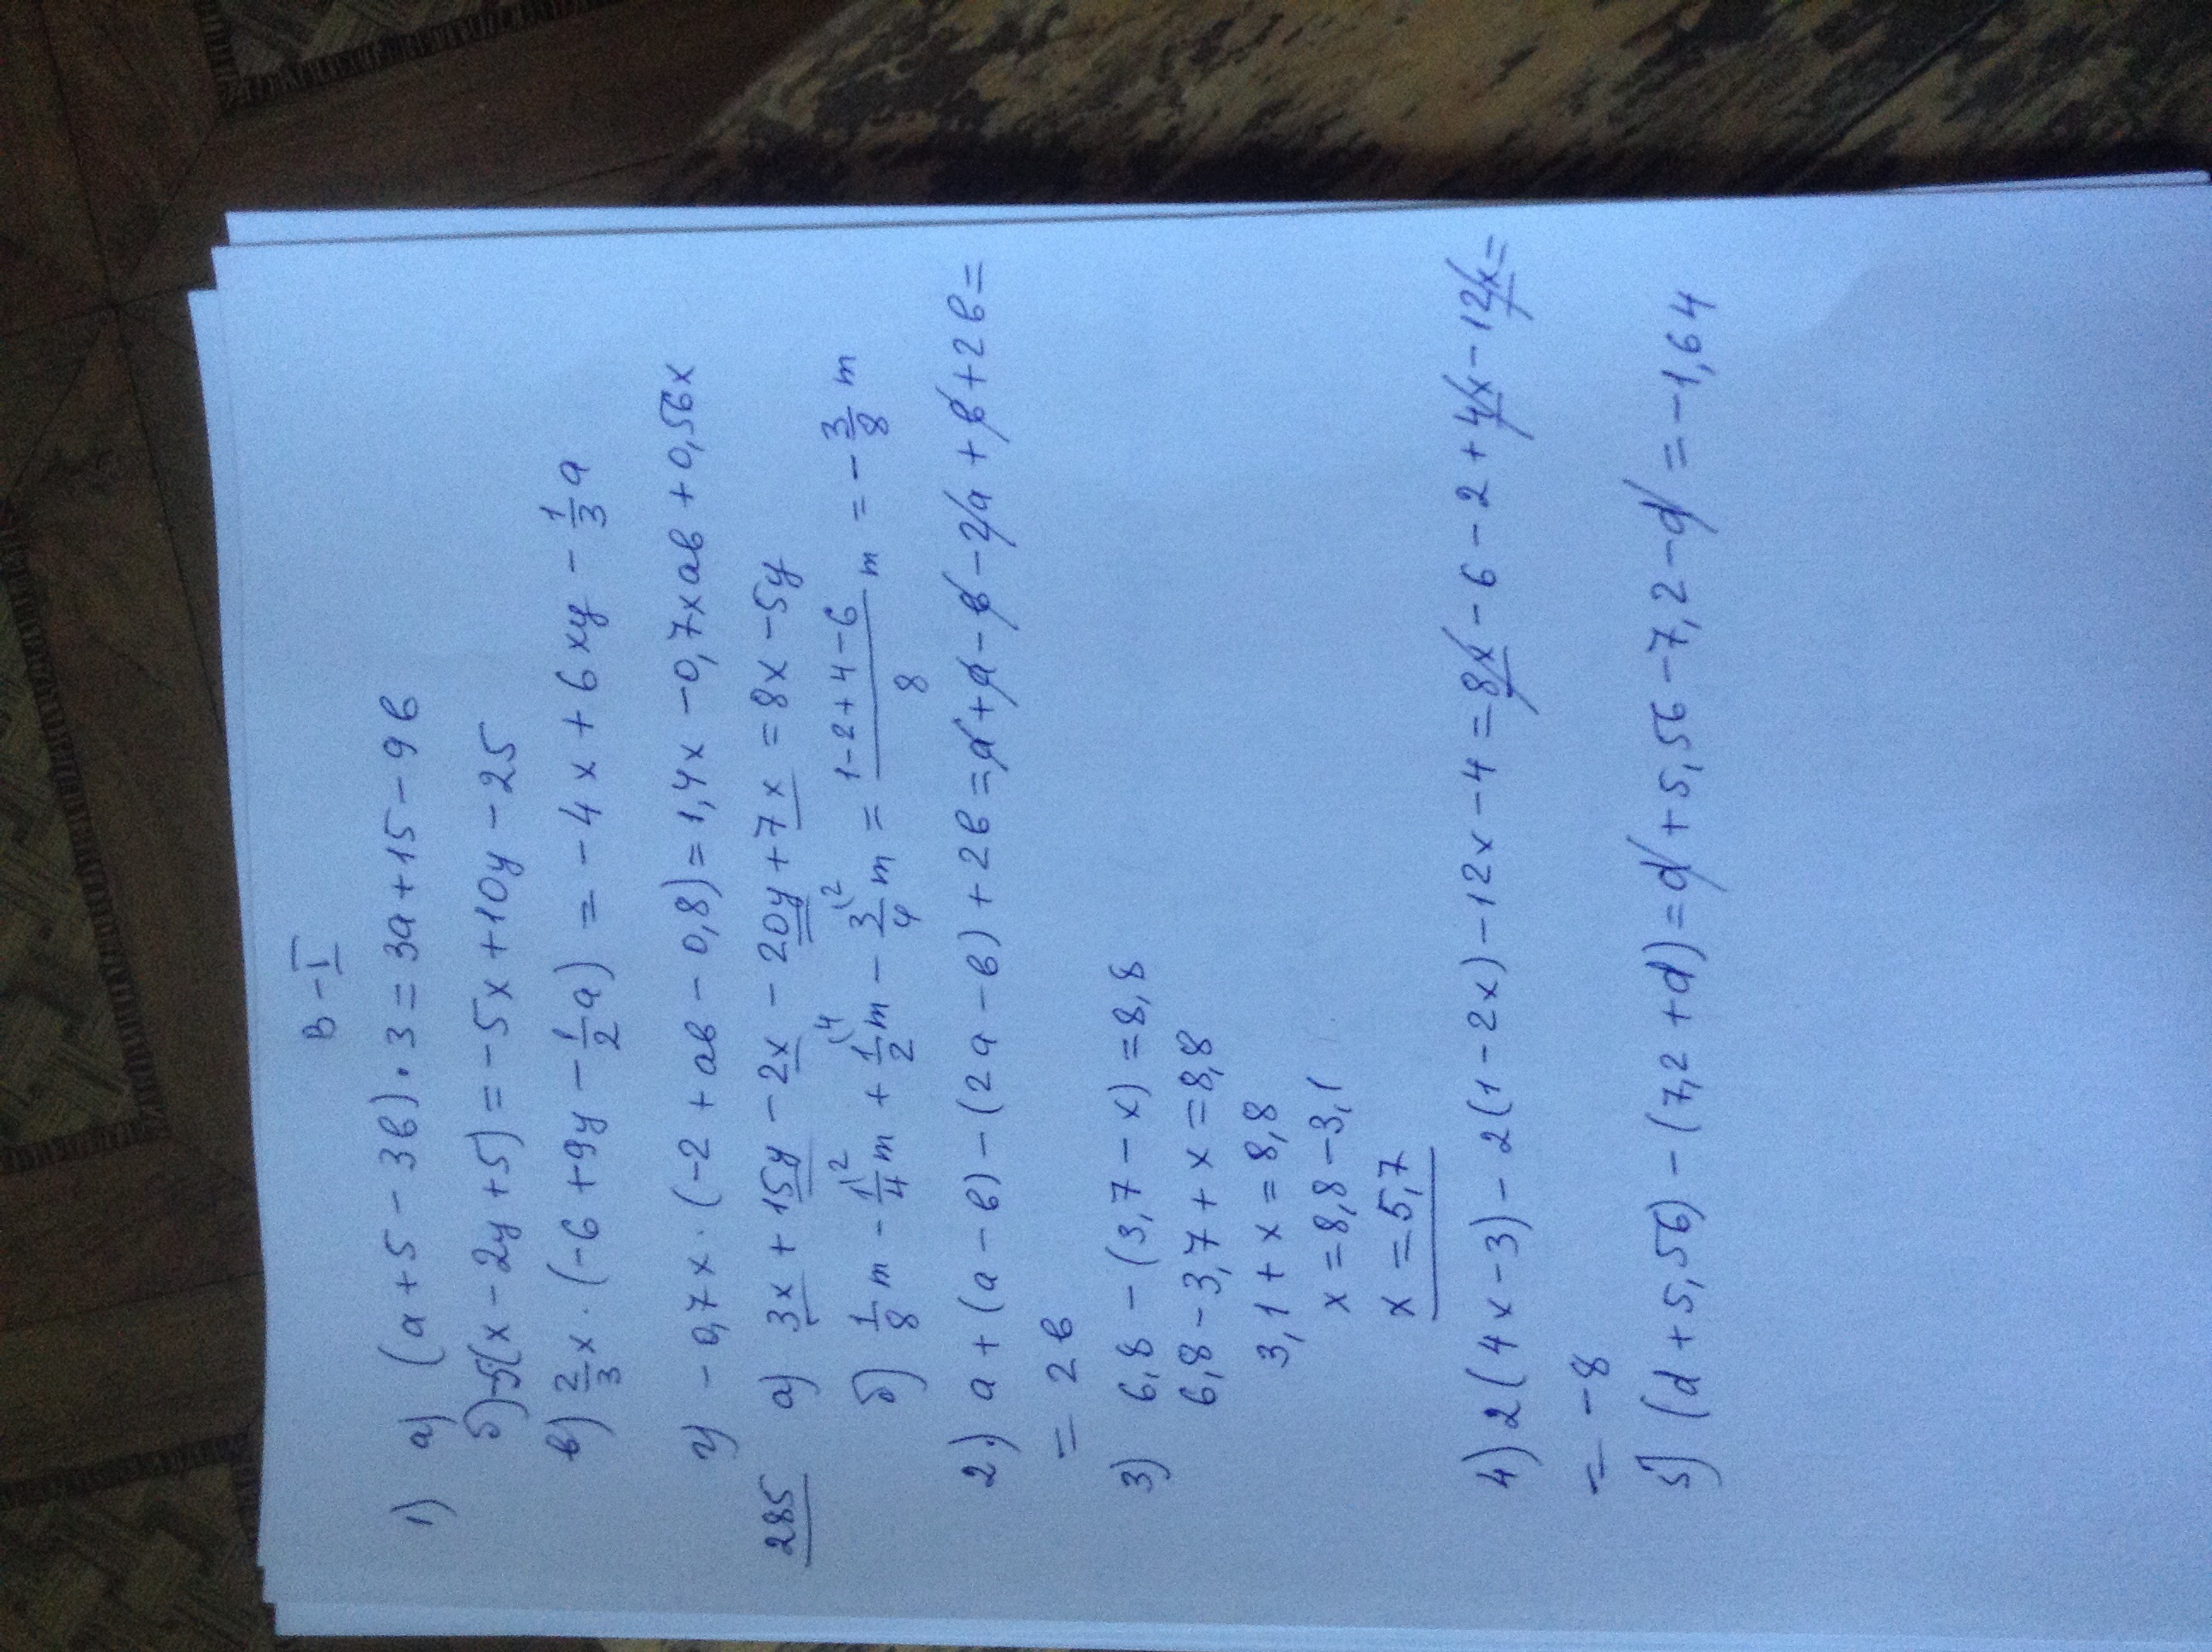 В – I
1) а) (a + 5 – 3в) · 3 = 3a + 15 – 9в
б) –5(x – 2y + 5) = –5x + 10y – 25
в) 2/3 x · (–6 + 9y – 1/2 a) = –4x + 6xy – 1/3 a
г) –0,7x · (–2 + aв – 0,8) = 1,4x – 0,7xaв + 0,56x
285 а) 3x + 15y – 2x – 20y + 7x = 8x – 5y
б) 1/8 m – 1/4 (2 m + 1/2 (4 m – 3/4 (2 m = (1 – 2 + 4 – 6)/8 m = – 3/8 m
2) a + (a – в) – (2a – в) + 2в = a + a – в – 2a + в + 2в =
= 2в
3) 6,8 – (3,7 – x) = 8,8
6,8 – 3,7 + x = 8,8
3,1 + x = 8,8
x = 8,8 – 3,1
x = 5,7
4) 2(4x – 3) – 2(1 – 2x) – 12x – 4 = 8x – 6 – 2 + 4x – 12x =
= –8
5) (d + 5,56) – (7,2 + d) = d + 5,56 – 7,2 – d = –1,64